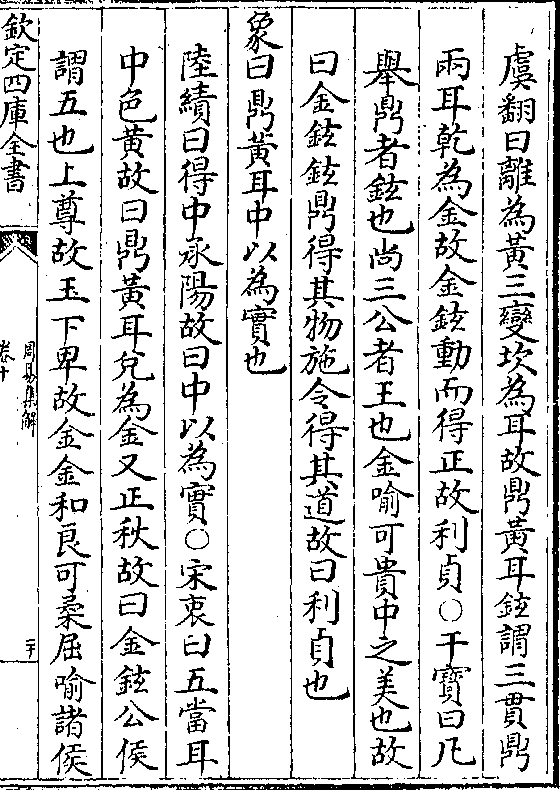 虞翻曰離為黃三變坎為耳故鼎黃耳鉉謂三貫鼎
兩耳乾為金故金鉉動而得正故利貞○干寶曰凡
舉鼎者鉉也尚三公者王也金喻可貴中之美也故
曰金鉉鉉鼎得其物施令得其道故曰利貞也
象曰鼎黃耳中以為實也
陸績曰得中承陽故曰中以為實○宋衷曰五當耳
中色黃故曰鼎黃耳兌為金又正秋故曰金鉉公侯
謂五也上尊故玉下卑故金金和良可柔屈喻諸侯
欽定四庫全書
周易集解
卷十
二十